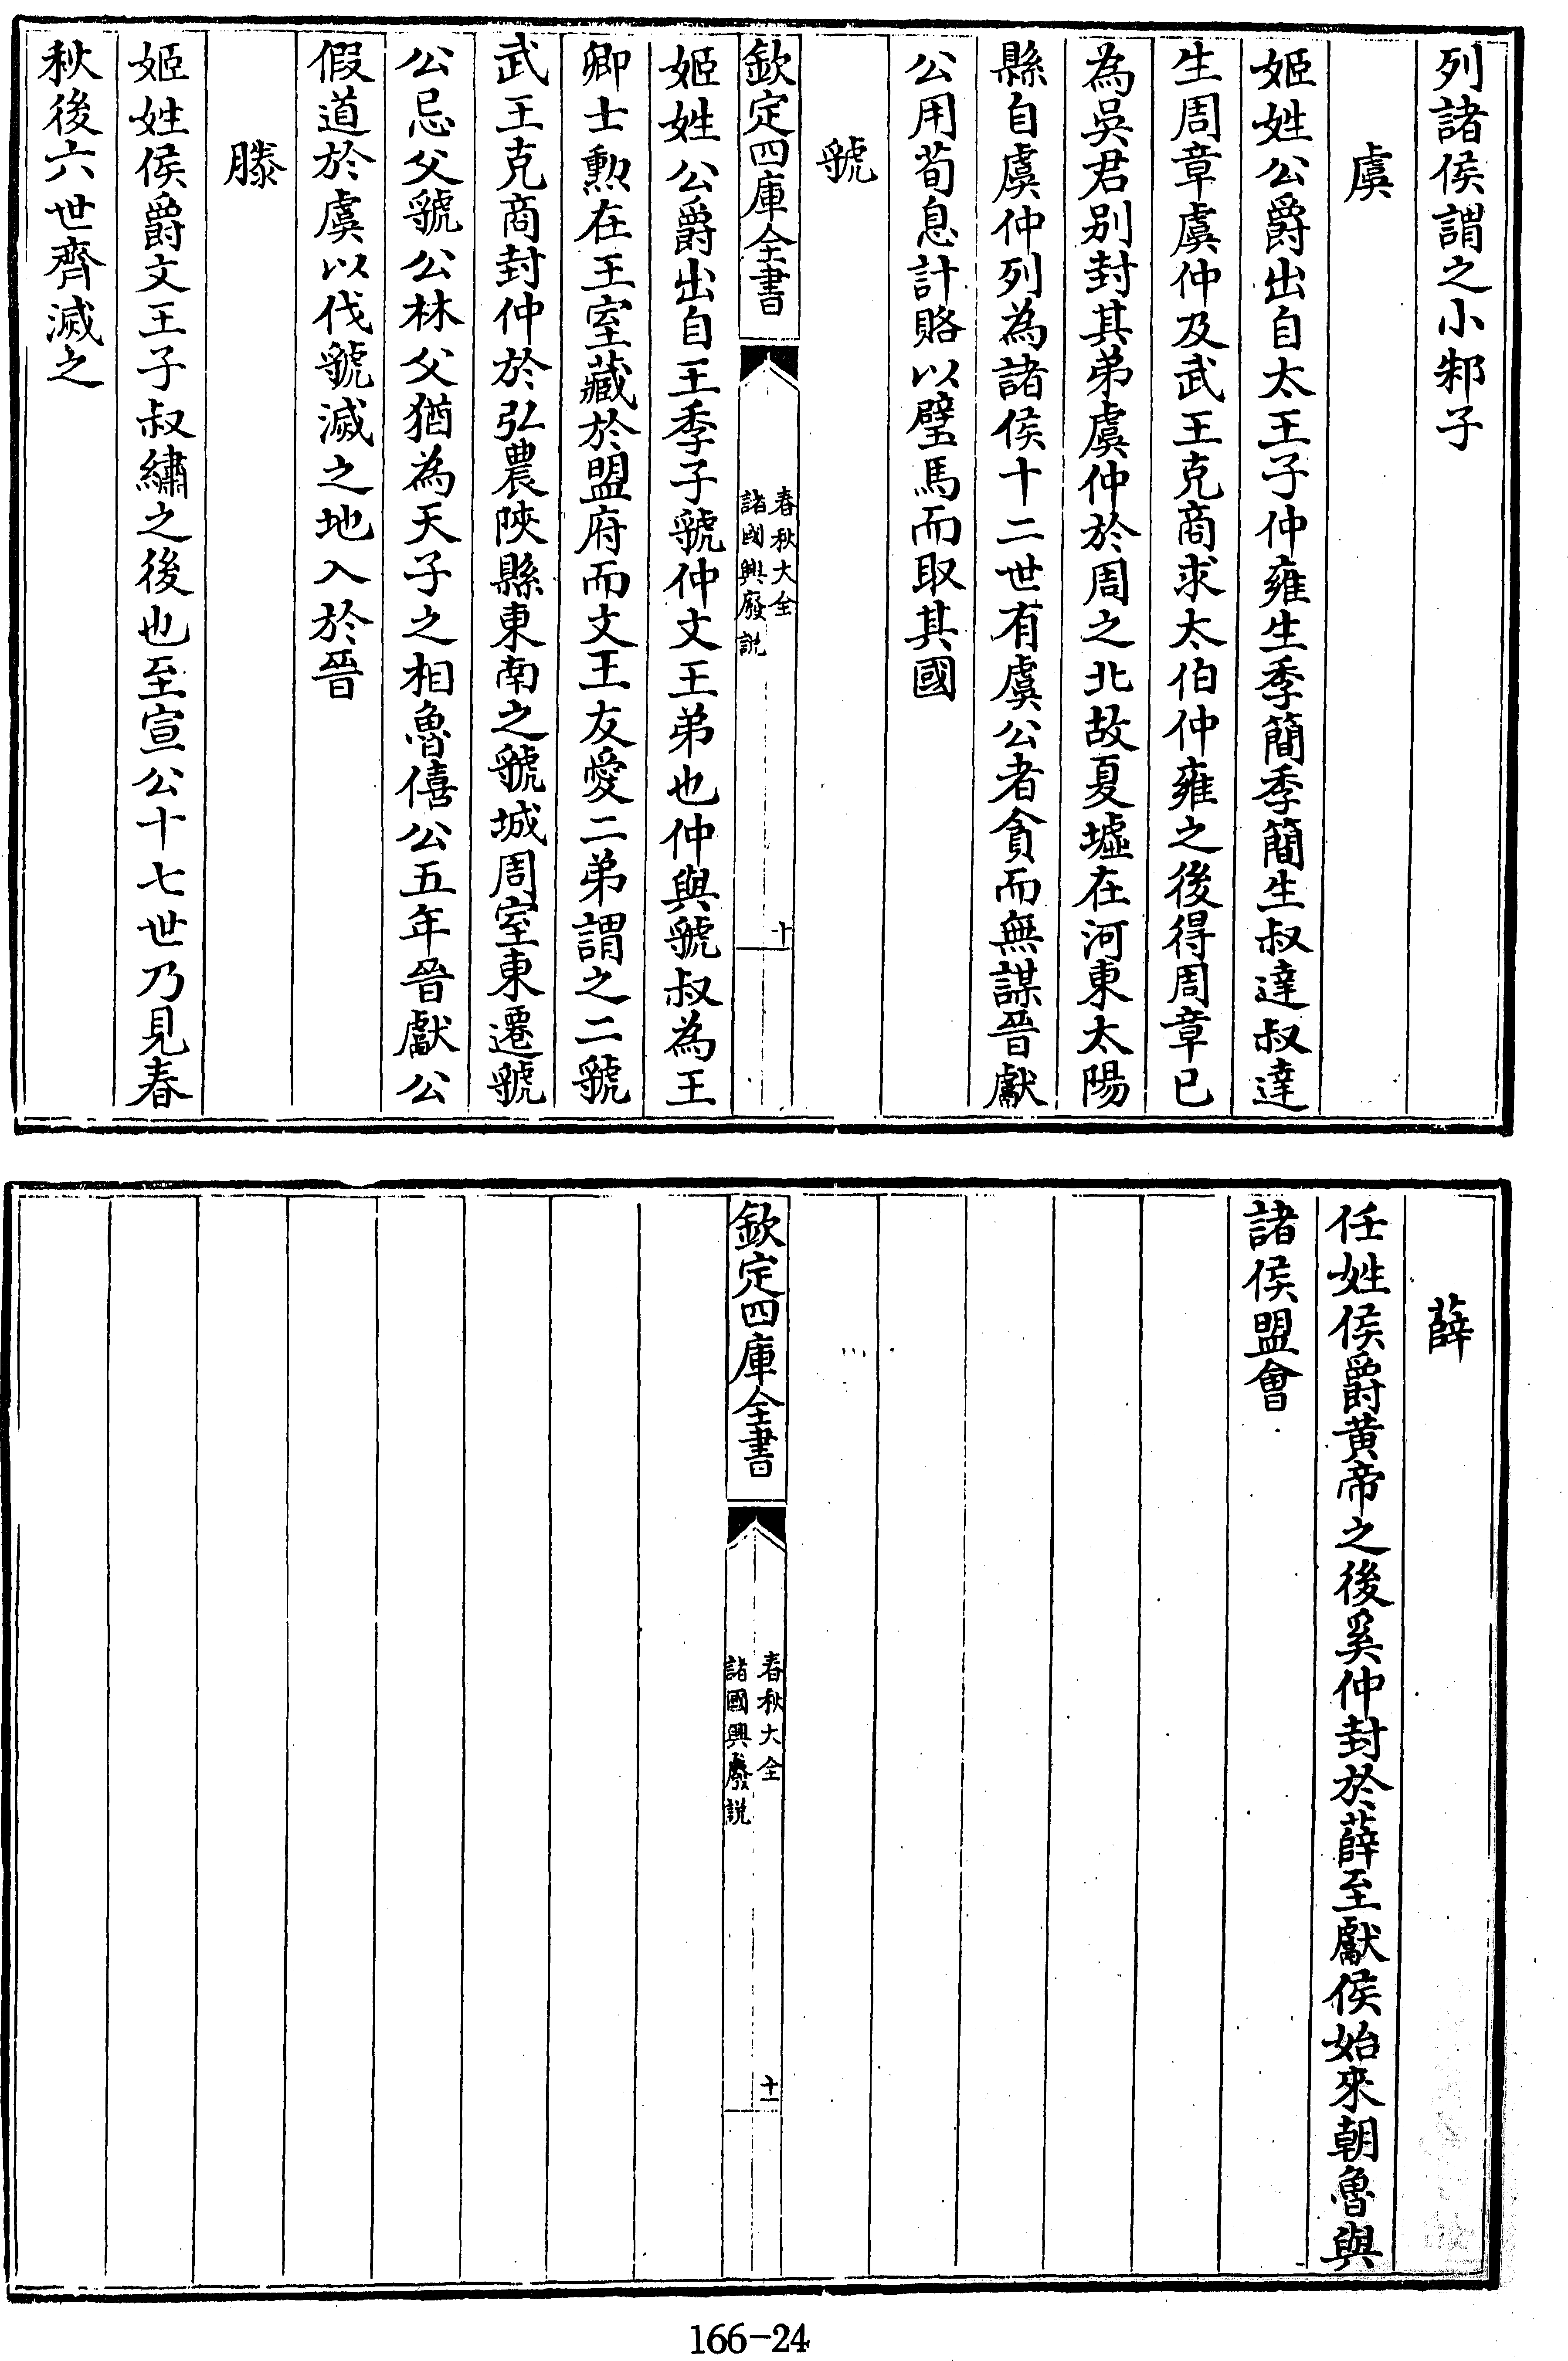 列諸侯謂之小邾子
虞
姬姓公爵出自太王子仲雍生季簡季簡生叔達叔達
生周章虞仲及武王克商求太伯仲雍之後得周章已
為吳君别封其弟虞仲於周之北故夏墟在河東太陽
縣自虞仲列為諸侯十二世有虞公者貪而無謀晉獻
公用荀息計賂以璧馬而取其國
虢
欽定四庫全書
春秋大全
諸國興廢說
十
姬姓公爵出自王季子虢仲文王弟也仲與虢叔為王
卿士勲在王室藏於盟府而文王友愛二弟謂之二虢
武王克商封仲於弘農陜縣東南之虢城周室東遷虢
公忌父虢公林父猶為天子之相魯僖公五年晉獻公
假道於虞以伐虢滅之地入於晉
滕
姬姓侯爵文王子叔繡之後也至宣公十七世乃見春
秋後六世齊滅之
薛
任姓侯爵黄帝之後奚仲封於薛至獻侯始來朝魯與
諸侯盟會
欽定四庫全書
春秋大全
諸國興廢説
十一
166-24